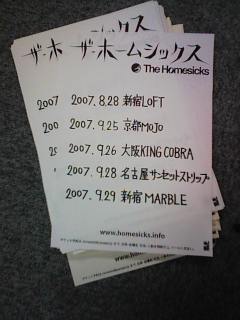 ザ・ホームシックス
The Homesicks
2007.8.28 新宿LOFT
2007.9.25 京都MOJO
2007.9.26 大阪KING COBRA
2007.9.28 名古屋サーセットストリップ
2007.9.29 新宿MARBLE
www.homesicks.info